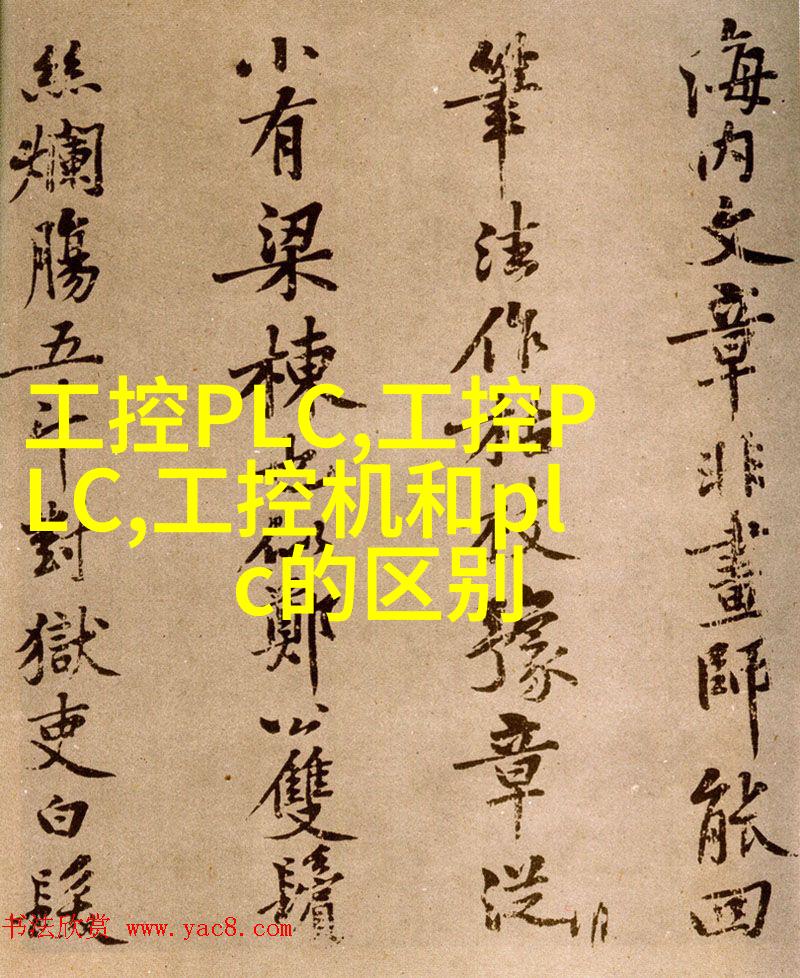 海内文章非畫師能回
筆法作枯枝豫章從
小有梁棟也似鄭公雙鬢
絲爛腸五斗對獄吏白髮
工控PLC,工控P
LC,工控机和pl
c的区别
书法欣赏 www.yac8.com